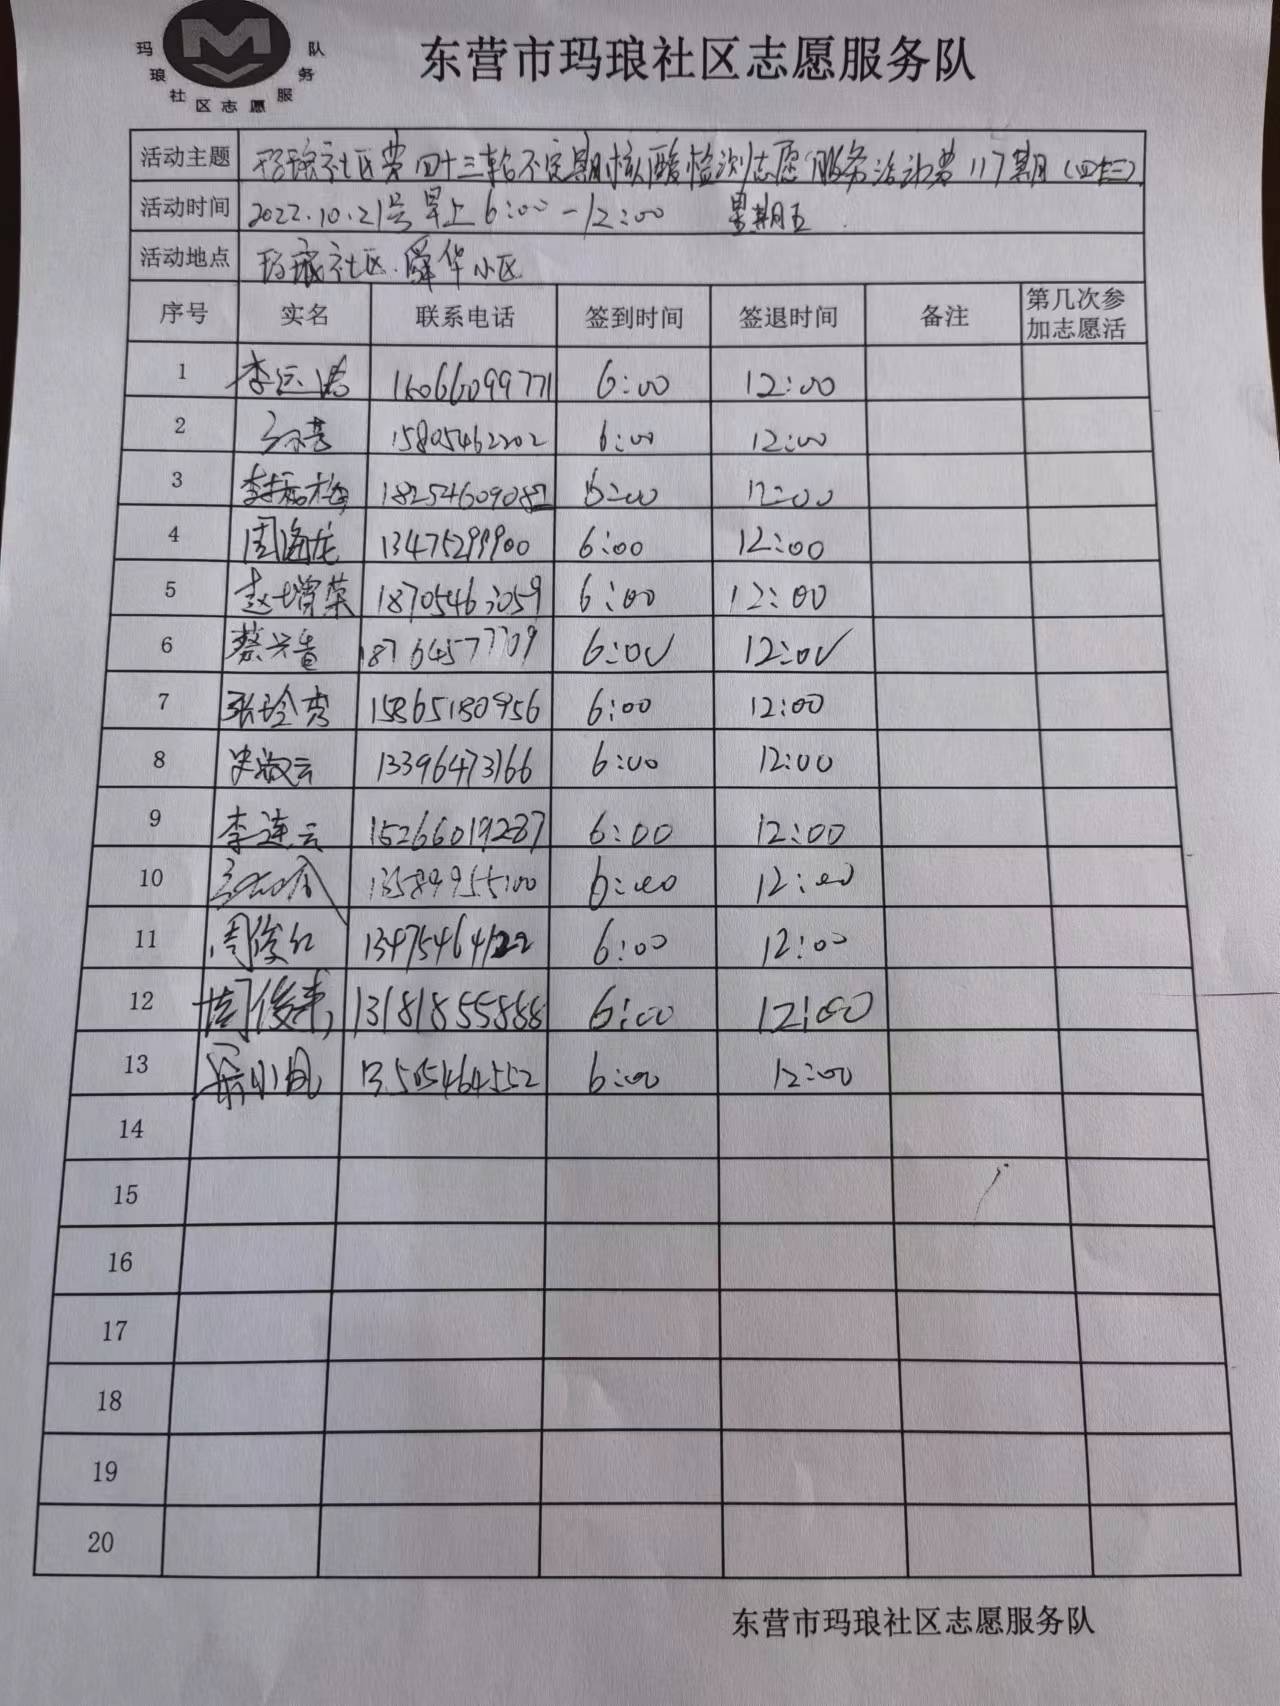 玛琅社区志愿服务队
东营市玛琅社区志愿服务队
活动主题 玛琅社区第四十三轮不定期核酸检测志愿服务活动第117期(四十三)
活动时间 2022.10.21号早上6:00-12:00 星期五
活动地点 玛琅社区.舜华小区
序号 实名 联系电话 签到时间 签退时间 备注 第几次参加志愿活
1 16066099771 6:00 12:00
2 15805462202 6:00 12:00
3 李振梅 18254609082 6:00 12:00
4 周海龙 13475299900 6:00 12:00
5 赵增荣 18705463059 6:00 12:00
6 蔡兴香 18764577709 6:00 12:00
7 张玲秀 15865180956 6:00 12:00
8 史淑云 13396473166 6:00 12:00
9 李连云 15266019287 6:00 12:00
10 13589955100 6:00 12:00
11 周俊红 13475464122 6:00 12:00
12 周俊来 13181855888 6:00 12:00
13 13505464552 6:00 12:00
14
15
16
17
18
19
20
东营市玛琅社区志愿服务队